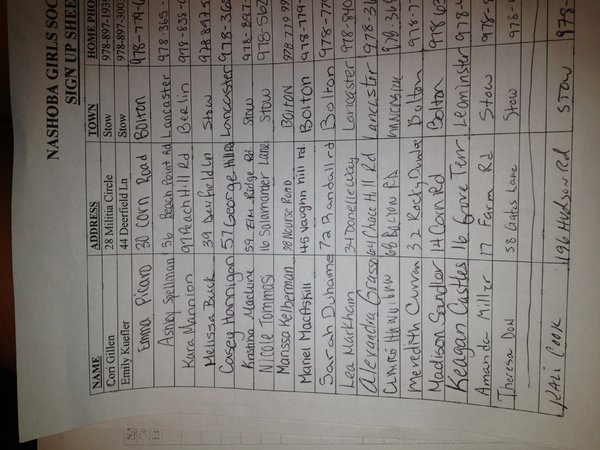 NASHOBA GIRLS SOC
SIGN UP SHEE
NAME ADDRESS TOWN HOME PHO
Cori Gillen 28 Militia Circle Stow 978-897-1939
Emily Kuefler 44 Deerfield Ln Stow 978-897-300
Emma Picaro 30 Corn Road Bolton 978-779-
Ashley Spellman Beach Point Rd Lancaster 978-365-
Kara Mannion 97 Peach Hill Rd Berlin 978-838-
Melissa Buck 39 Deerfield Ln Stow
Casey Hannigan 57 George Hill Rd Lancaster 978-368
Kristina Maclure 59 Elm Ridge Rd. Stow 978-897-
Nicole Tommasi 16 Salamander Lane Stow 978-562
Marissa Kelberman 28 Nourse Road BOLTON 978 779 99
Mairel MacAskill 45 Vaughn Hill rd. Bolton 978-779-
Sarah Duhame 72 Randall rd Bolton 978-779
Lea Markham 34 Donelle Way Lancaster 978-840
Alexandra Grasso 64 Chace Hill Rd Lancaster 978-
68 BOLTON RD LANCASTER 978-368
Meredith Curran 32 Rocky Dundee Bolton 978-77
Madison Sandler 14 Corn Rd Bolton 978
Keegan Castles 16 Grove Terr Leominster 978-
Amanda Miller 17 Farm Rd Stow 978-
Theresa Don 58 Gates Lane Stow 978-
Kali Cook 196 Hudson Rd Stow 978-